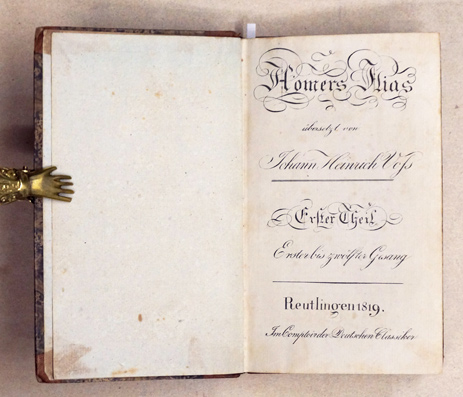 Homers Ilias
übersetzt von
Johann Heinrich Voſs
Erſter Theil
Erster bis zwölfter Gesang
Reutlingen 1819.
Im Comptoir der Deutschen Classicker